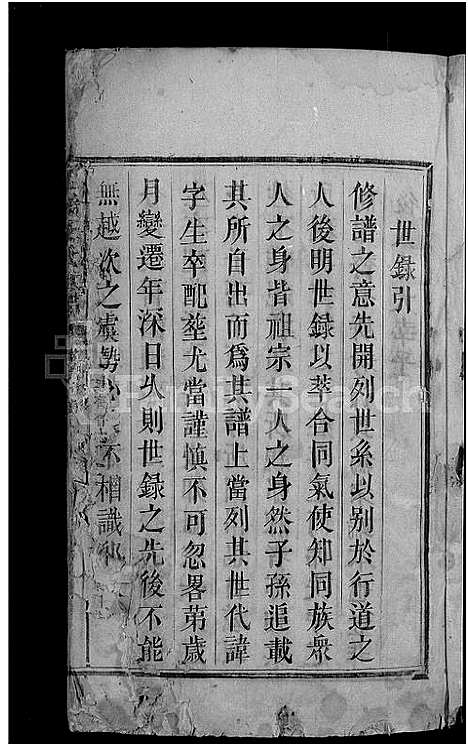 世錄引
修譜之意先開列世系以别於行道之
人後明世錄以萃合同氣使知同族衆
人之身皆祖宗一人之身然子孫追載
其所自出而爲其譜上當列其世代諱
字生卒配塟尤當謹慎不可忽畧第歲
月變遷年深日久則世錄之先後不能
無越次之虞勢 不相識
FamilySearch